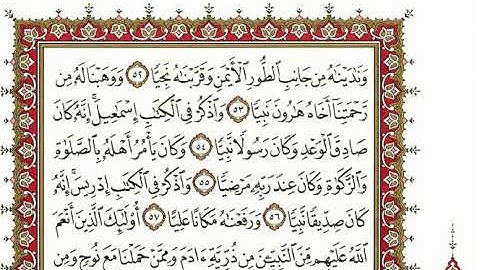 وَنَٰدَيْنَٰهُ مِن جَانِبِ ٱلطُّورِ ٱلْأَيْمَنِ وَقَرَّبْنَٰهُ نَجِيًّا ٥٢ وَوَهَبْنَا لَهُۥ مِن
رَّحْمَتِنَآ أَخَاهُ هَٰرُونَ نَبِيًّا ٥٣ وَٱذْكُرْ فِى ٱلْكِتَٰبِ إِسْمَٰعِيلَ ۚ إِنَّهُۥ كَانَ
صَادِقَ ٱلْوَعْدِ وَكَانَ رَسُولًا نَّبِيًّا ٥٤ وَكَانَ يَأْمُرُ أَهْلَهُۥ بِٱلصَّلَوٰةِ
وَٱلزَّكَوٰةِ وَكَانَ عِندَ رَبِّهِۦ مَرْضِيًّا ٥٥ وَٱذْكُرْ فِى ٱلْكِتَٰبِ إِدْرِيسَ ۚ إِنَّهُۥ
كَانَ صِدِّيقًا نَّبِيًّا ٥٦ وَرَفَعْنَٰهُ مَكَانًا عَلِيًّا ٥٧ أُو۟لَٰٓئِكَ ٱلَّذِينَ أَنْعَمَ
ٱللَّهُ عَلَيْهِم مِّنَ ٱلنَّبِيِّۦنَ مِن ذُرِّيَّةِ ءَادَمَ وَمِمَّنْ حَمَلْنَا مَعَ نُوحٍ وَمِن